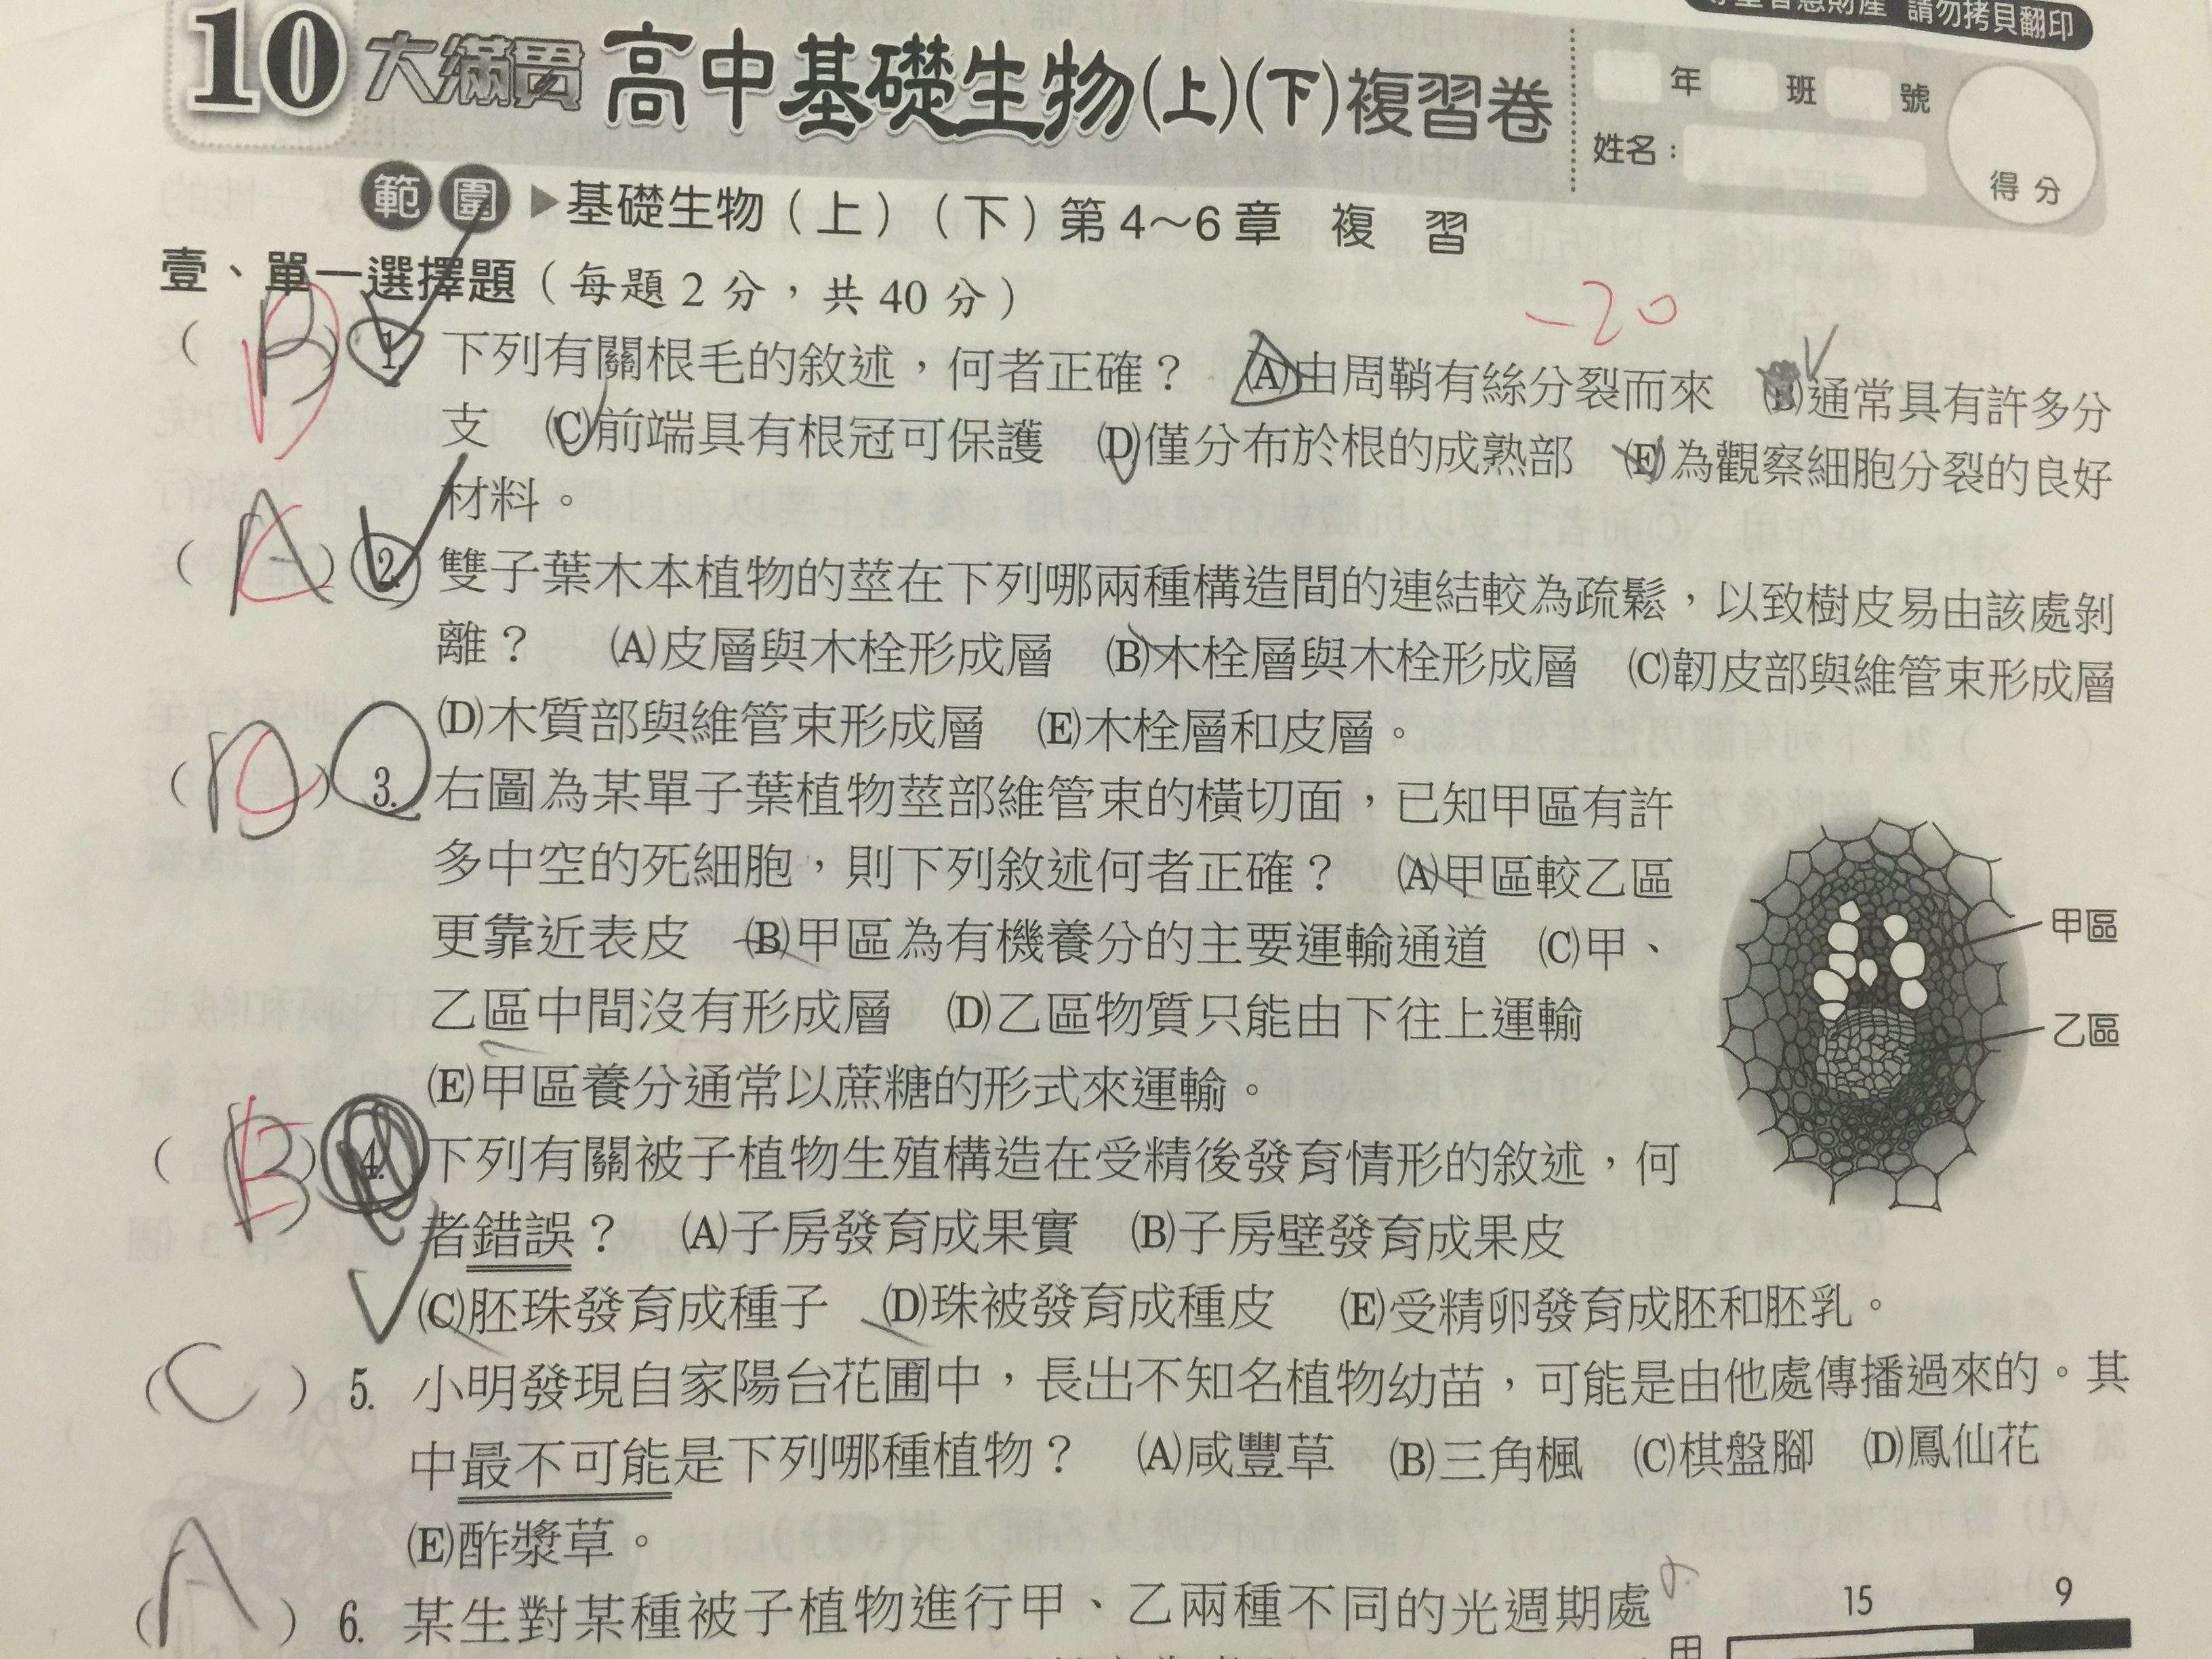 請勿拷貝翻印
10 大滿貫 高中基礎生物(上)(下)複習卷
年 班 號
姓名：
得分
範圍 ▶基礎生物（上）（下）第4～6章 複習
壹、單一選擇題（每題2分，共40分）
-20
( B ) 1. 下列有關根毛的敘述，何者正確？ (A)由周鞘有絲分裂而來 (B)通常具有許多分
支 (C)前端具有根冠可保護 (D)僅分布於根的成熟部 (E)為觀察細胞分裂的良好
材料。
( A ) 2. 雙子葉木本植物的莖在下列哪兩種構造間的連結較為疏鬆，以致樹皮易由該處剝
離？ (A)皮層與木栓形成層 (B)木栓層與木栓形成層 (C)韌皮部與維管束形成層
(D)木質部與維管束形成層 (E)木栓層和皮層。
( D ) 3. 右圖為某單子葉植物莖部維管束的橫切面，已知甲區有許
多中空的死細胞，則下列敘述何者正確？ (A)甲區較乙區
更靠近表皮 (B)甲區為有機養分的主要運輸通道 (C)甲、
乙區中間沒有形成層 (D)乙區物質只能由下往上運輸
(E)甲區養分通常以蔗糖的形式來運輸。
甲區
乙區
( B ) 4. 下列有關被子植物生殖構造在受精後發育情形的敘述，何
者錯誤？ (A)子房發育成果實 (B)子房壁發育成果皮
(C)胚珠發育成種子 (D)珠被發育成種皮 (E)受精卵發育成胚和胚乳。
( C ) 5. 小明發現自家陽台花圃中，長出不知名植物幼苗，可能是由他處傳播過來的。其
中最不可能是下列哪種植物？ (A)咸豐草 (B)三角楓 (C)棋盤腳 (D)鳳仙花
(E)酢漿草。
( A ) 6. 某生對某種被子植物進行甲、乙兩種不同的光週期處
15 9
甲